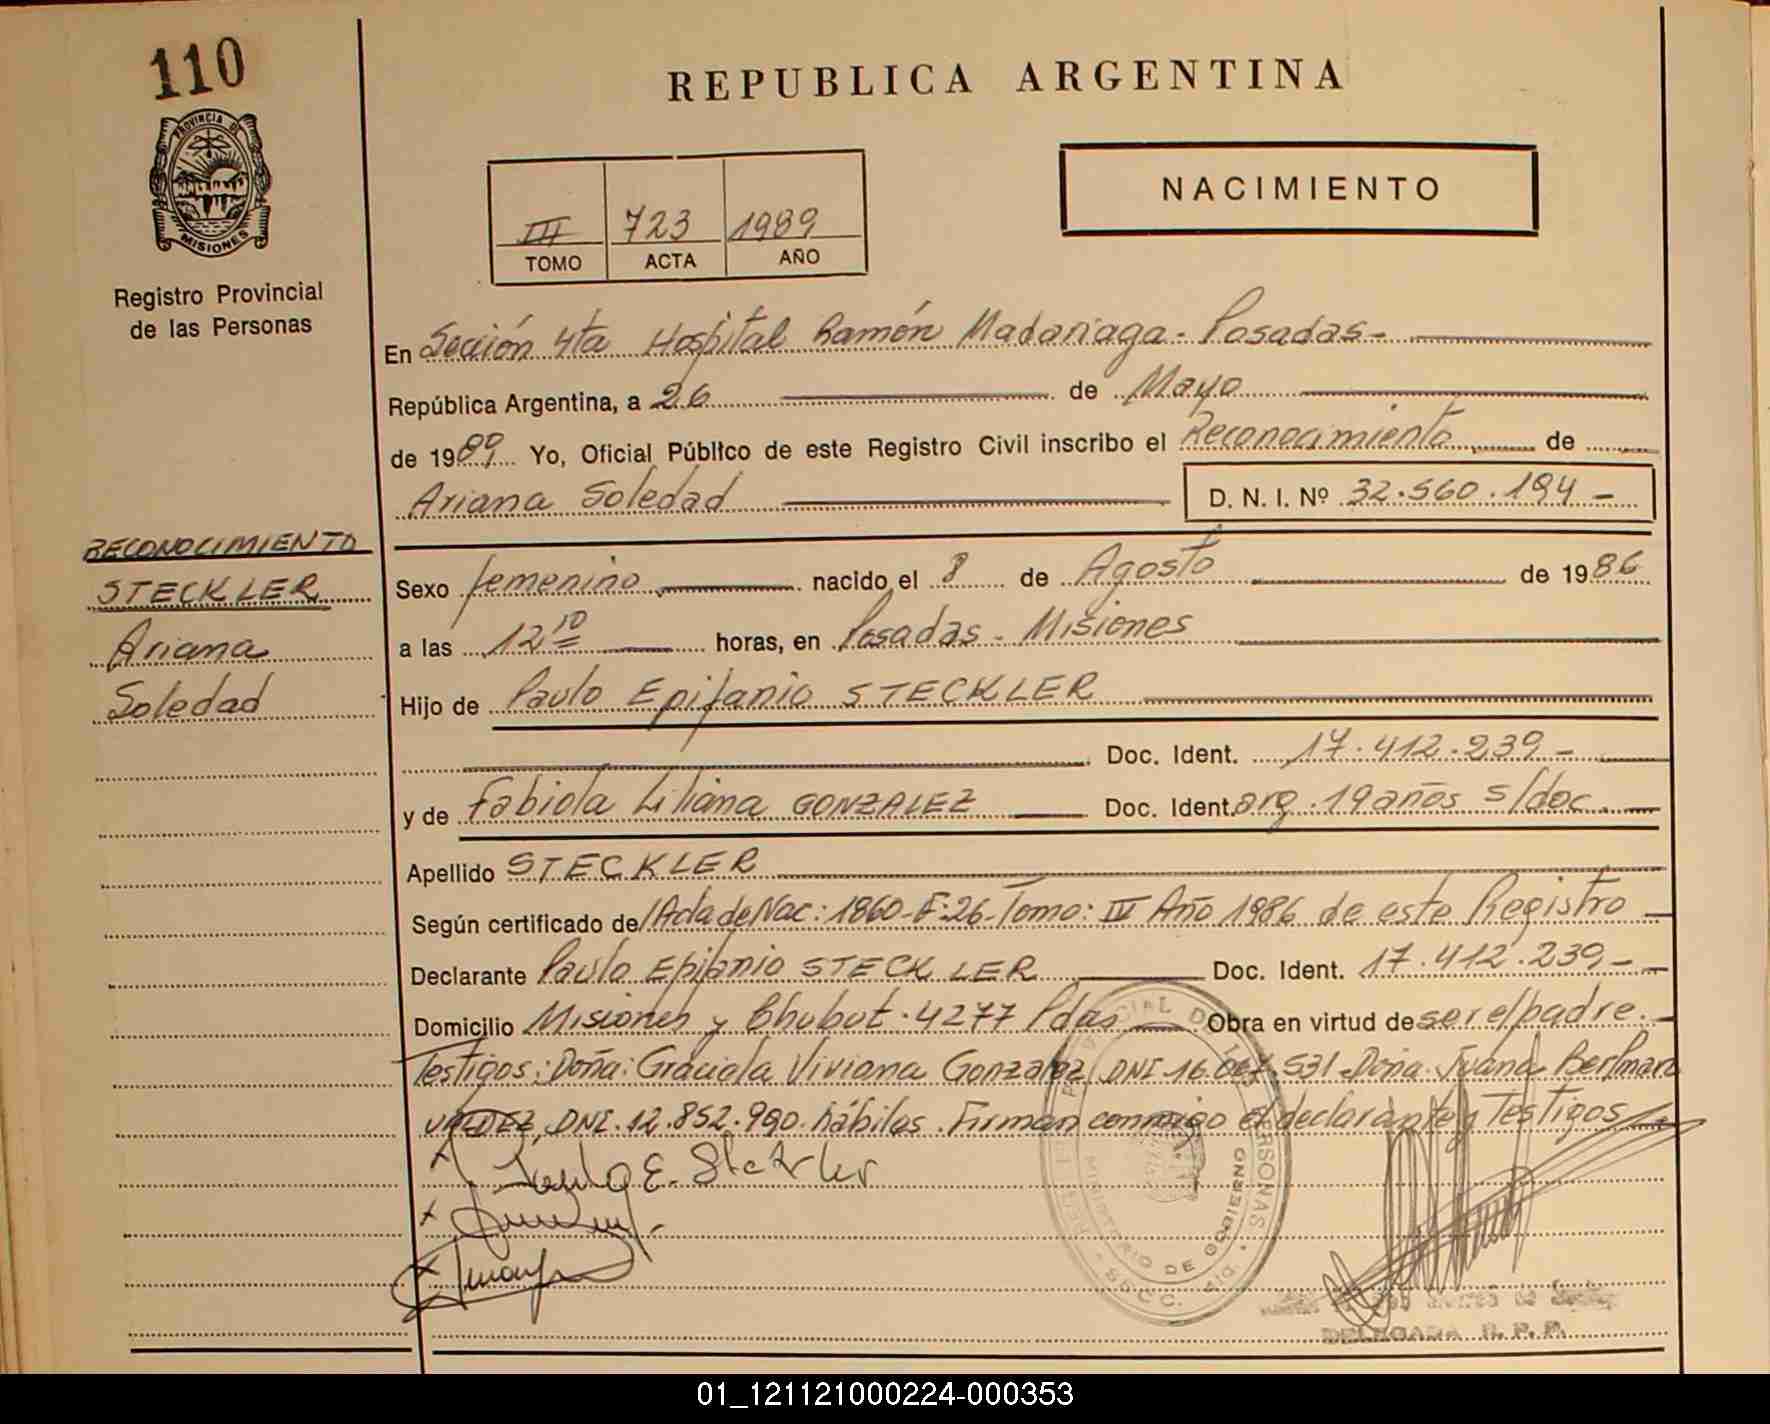 110
REPUBLICA ARGENTINA
PROVINCIA DE
MISIONES
NACIMIENTO
III 723 1989
TOMO ACTA AÑO
Registro Provincial
de las Personas
En Sección 4ta Hospital Ramón Madariaga - Posadas -
República Argentina, a 26 de Mayo
de 1989 Yo, Oficial Público de este Registro Civil inscribo el Reconocimiento de
Ariana Soledad D. N. I. Nº 32.560.194 -
RECONOCIMIENTO
STECKLER
Ariana
Soledad
Sexo femenino nacido el 8 de Agosto de 1986
a las 12 10 horas, en Posadas - Misiones
Hijo de Paulo Epifanio STECKLER
Doc. Ident. 17.412.239 -
y de Fabiola Liliana GONZALEZ Doc. Ident. arg. 19 años s/doc.
Apellido STECKLER
Según certificado de /Acta de Nac: 1860 - F: 26 - Tomo: IV Año 1986 de este Registro
Declarante Paulo Epifanio STECKLER Doc. Ident. 17.412.239 -
Domicilio Misiones y Chubut. 4277 Pdas Obra en virtud de ser el/padre.
Testigos: Doña: Graciela Viviana Gonzalez DNI 16.067.531 - Doña Juana
VALDEZ, DNI. 12.852.990. hábiles. Firman conmigo el declarante y Testigos
Paulo E. Stekler
MINISTERIO DE GOBIERNO
DELEGADA R. P. P.
01_121121000224-000353